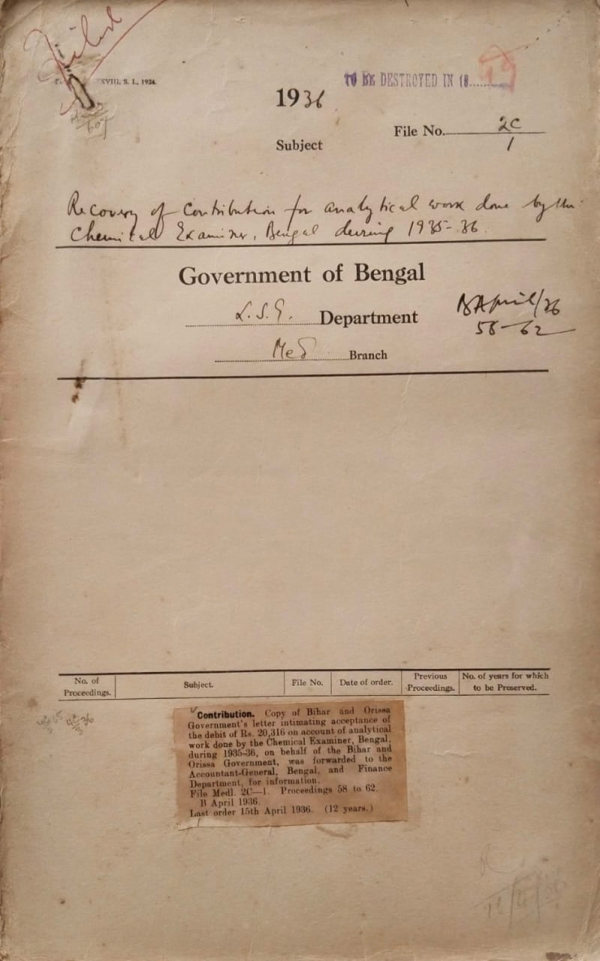 Filed
XVIII, B. I., 1936.
TO BE DESTROYED IN 19
1936
File No. 2C/1
Subject
Recovery of Contribution for analytical work done by the
Chemical Examiner, Bengal during 1935-36.
Government of Bengal
L.S.G. Department
B April/36
58-62
Med Branch
No. of Proceedings.
Subject.
File No.
Date of order.
Previous Proceedings.
No. of years for which to be Preserved.
Contribution. Copy of Bihar and Orissa
Government's letter intimating acceptance of
the debit of Rs. 20,316 on account of analytical
work done by the Chemical Examiner, Bengal,
during 1935-36, on behalf of the Bihar and
Orissa Government, was forwarded to the
Accountant-General, Bengal, and Finance
Department, for information.
File Medl. 2C—1. Proceedings 58 to 62.
B April 1936.
Last order 15th April 1936. (12 years.)